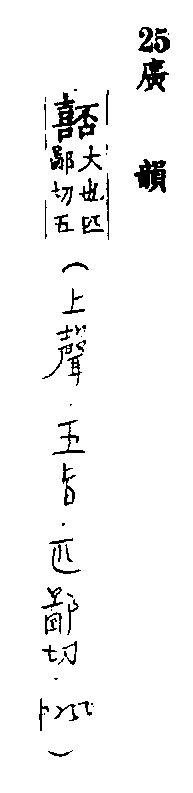 25 廣韻
嚭大也匹
鄙切五
(上聲.五旨.匹鄙切.p252)